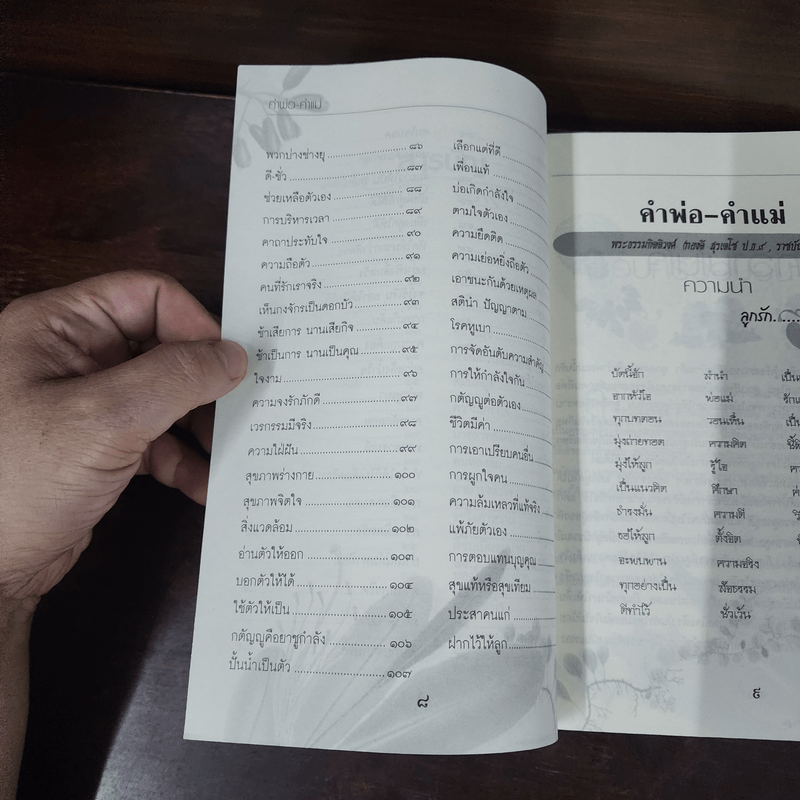 คำพ่อ-คำแม่
พวกบ่างช่างยุ ........ ๘๖
ดี-ชั่ว ........ ๘๗
ช่วยเหลือตัวเอง ........ ๘๘
การบริหารเวลา ........ ๘๙
คาถาประทับใจ ........ ๙๐
ความถือตัว ........ ๙๑
คนที่รักเราจริง ........ ๙๒
เห็นกงจักรเป็นดอกบัว ........ ๙๓
ช้าเสียการ นานเสียกิจ ........ ๙๔
ช้าเป็นการ นานเป็นคุณ ........ ๙๕
ใจงาม ........ ๙๖
ความจงรักภักดี ........ ๙๗
เวรกรรมมีจริง ........ ๙๘
ความใฝ่ฝัน ........ ๙๙
สุขภาพร่างกาย ........ ๑๐๐
สุขภาพจิตใจ ........ ๑๐๑
สิ่งแวดล้อม ........ ๑๐๒
อ่านตัวให้ออก ........ ๑๐๓
บอกตัวให้ได้ ........ ๑๐๔
ใช้ตัวให้เป็น ........ ๑๐๕
กตัญญูคือยาชูกำลัง ........ ๑๐๖
ปั้นน้ำเป็นตัว ........ ๑๐๗
เลือกแต่ที่ดี
เพื่อนแท้
บ่อเกิดกำลังใจ
ตามใจตัวเอง
ความยึดติด
ความเย่อหยิ่งถือตัว
เอาชนะกันด้วยเหตุผล
สตินำ ปัญญาตาม
โรคหูเบา
การจัดอันดับความสำคัญ
การให้กำลังใจกัน
กตัญญูต่อตัวเอง
ชีวิตมีค่า
การเอาเปรียบคนอื่น
การผูกใจคน
ความล้มเหลวที่แท้จริง
แพ้ภัยตัวเอง
การตอบแทนบุญคุณ
สุขแท้หรือสุขเทียม
ประสาคนแก่
ฝากไว้ให้ลูก
๘
คำพ่อ-คำแม่
พระธรรมกิตติวงศ์ (ทองดี สุรเตโช ป.ธ.๙, ราชบัณ
ความนำ
ลูกรัก......
บัดนี้ฮัก
พ่อแม่
ทุกบทตอน
มุ่งถ่ายทอด ความคิด
มุ่งให้ลูก
เป็นแนวคิด ศึกษา
ธำรงมั่น ความดี
ขอให้ลูก ตั้งจิต
ความจริง
ทุกอย่างเป็น
ดีทำไว้
๙